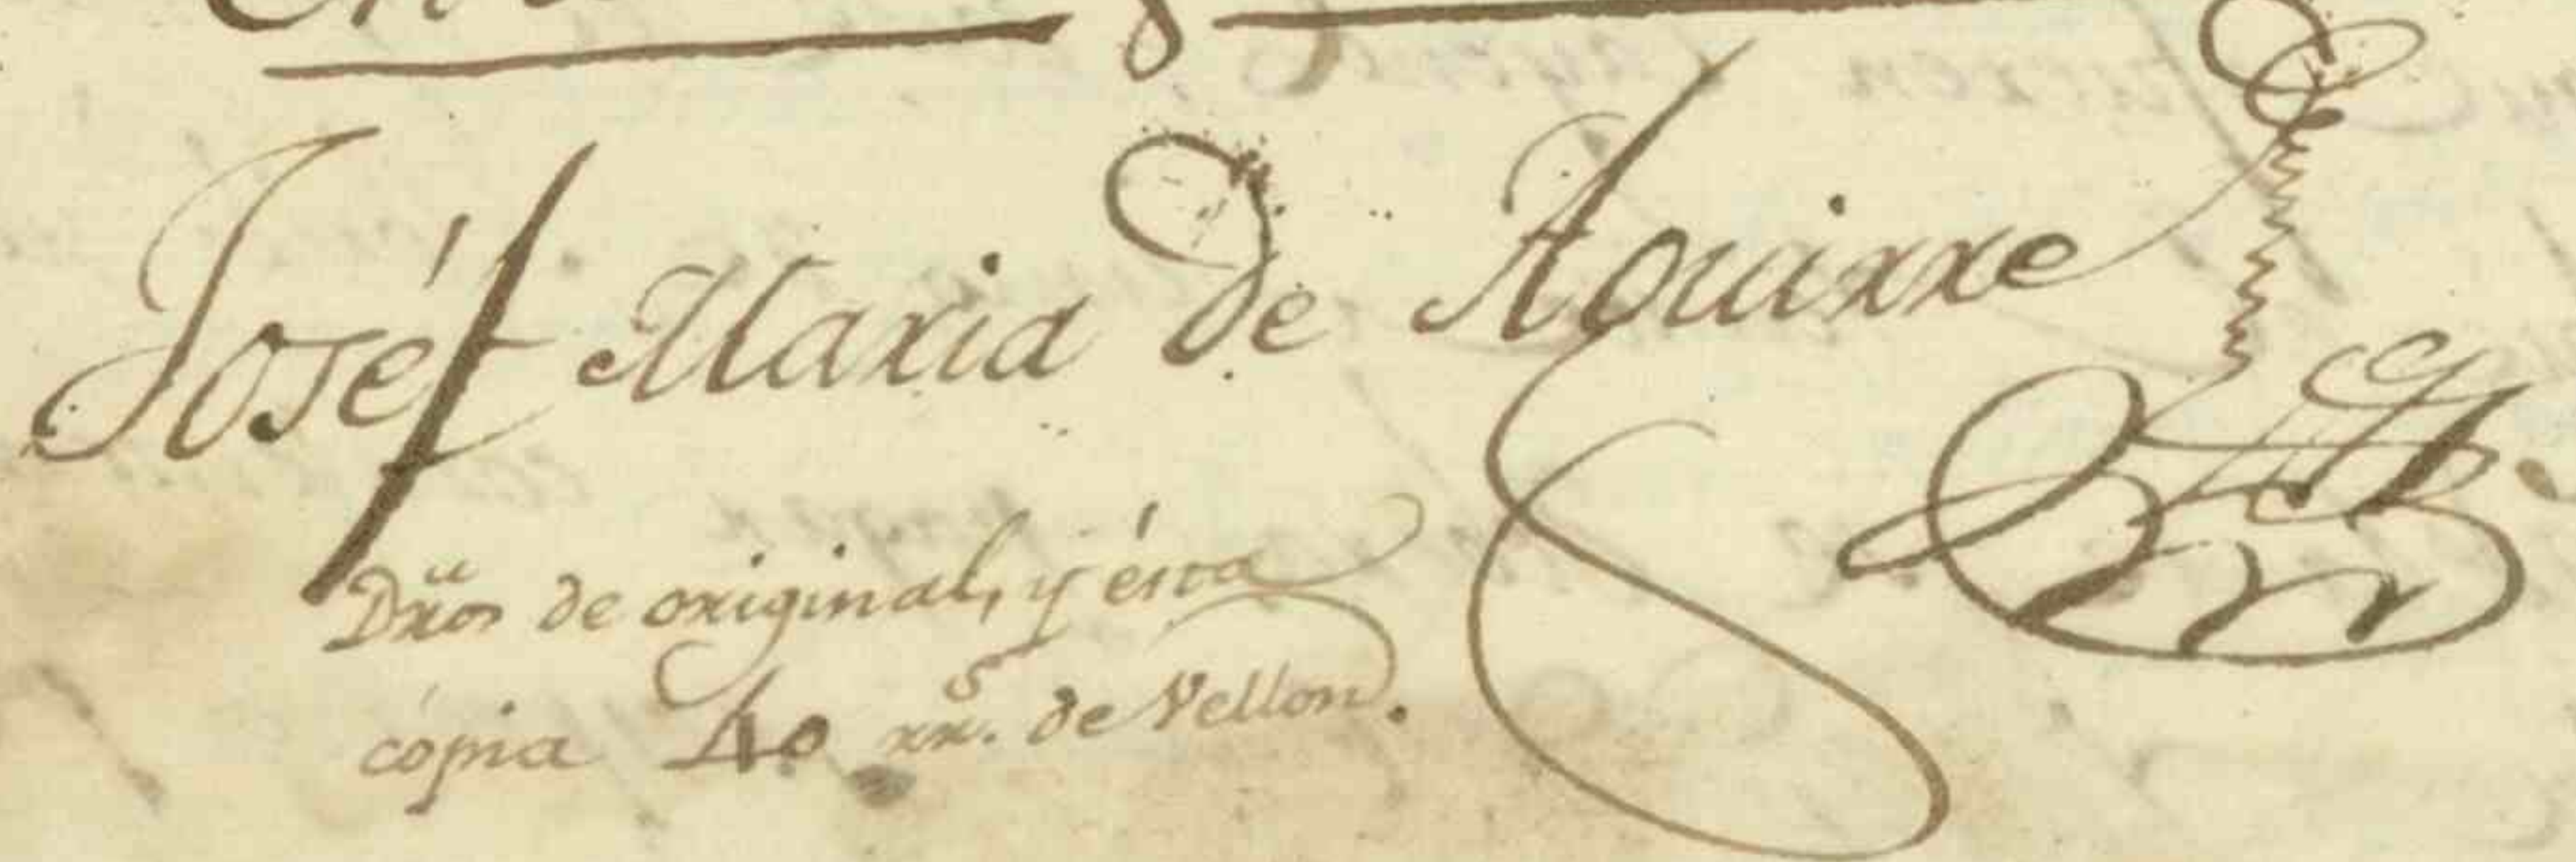 Joséf Maria de Aguirre
Dros de original, y ésta
cópia 40 rrs. de Vellon.